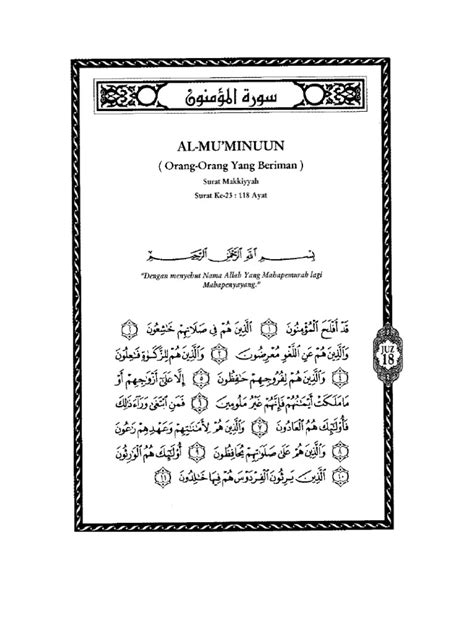 سورة المؤمنون
AL-MU'MINUUN
( Orang-Orang Yang Beriman )
Surat Makkiyyah
Surat Ke-23 : 118 Ayat
بِسْمِ اللَّهِ الرَّحْمَٰنِ الرَّحِيمِ
"Dengan menyebut Nama Allah Yang Mahapemurah lagi
Mahapenyayang."
قَدْ أَفْلَحَ الْمُؤْمِنُونَ ١ الَّذِينَ هُمْ فِي صَلَاتِهِمْ خَاشِعُونَ ٢
وَالَّذِينَ هُمْ عَنِ اللَّغْوِ مُعْرِضُونَ ٣ وَالَّذِينَ هُمْ لِلزَّكَوٰةِ فَاعِلُونَ
٤ وَالَّذِينَ هُمْ لِفُرُوجِهِمْ حَافِظُونَ ٥ إِلَّا عَلَىٰ أَزْوَاجِهِمْ أَوْ
مَا مَلَكَتْ أَيْمَانُهُمْ فَإِنَّهُمْ غَيْرُ مَلُومِينَ ٦ فَمَنِ ابْتَغَىٰ وَرَاءَ ذَٰلِكَ
فَأُولَٰئِكَ هُمُ الْعَادُونَ ٧ وَالَّذِينَ هُمْ لِأَمَانَاتِهِمْ وَعَهْدِهِمْ رَاعُونَ
٨ وَالَّذِينَ هُمْ عَلَىٰ صَلَوَاتِهِمْ يُحَافِظُونَ ٩ أُولَٰئِكَ هُمُ الْوَارِثُونَ
١٠ الَّذِينَ يَرِثُونَ الْفِرْدَوْسَ هُمْ فِيهَا خَالِدُونَ ١١
JUZ
18